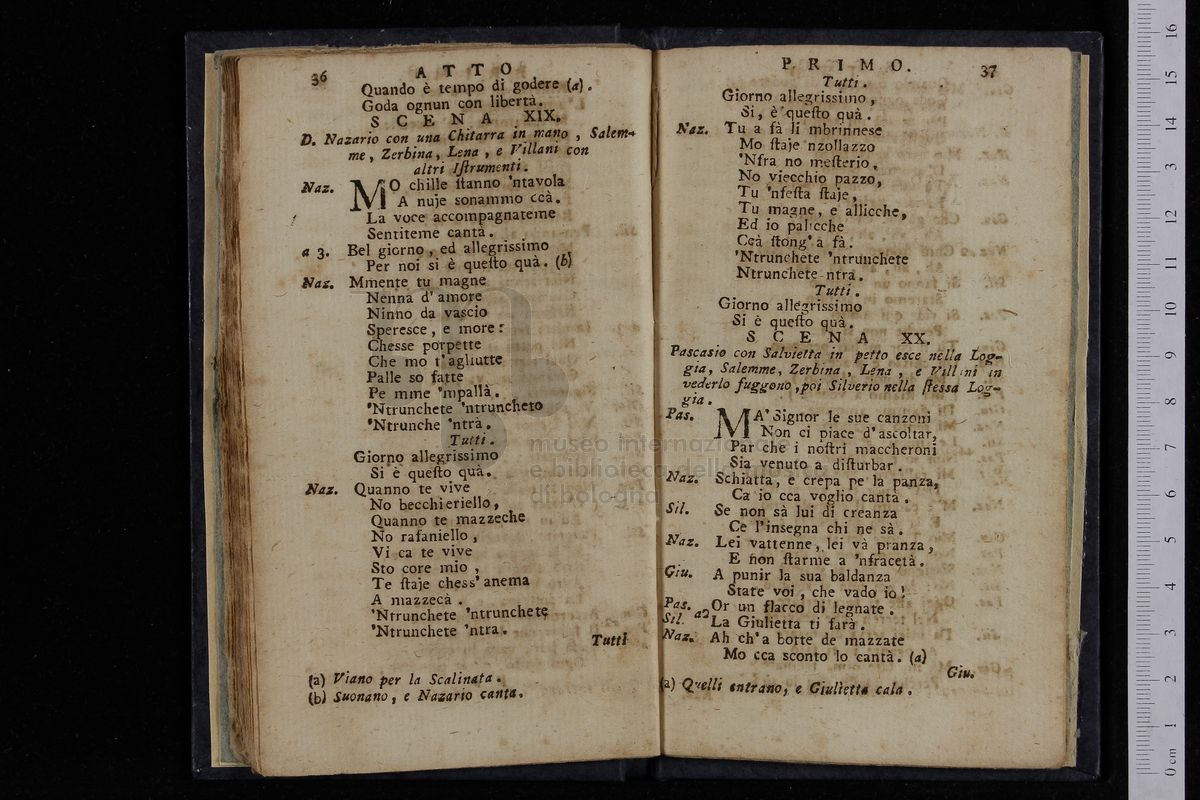 36 A T T O
Quando è tempo di godere (a).
Goda ognun con libertà.
S C E N A XIX.
D. Nazario con una Chitarra in mano, Salem-
me, Zerbina, Lena, e Villani con
altri Iſtrumenti.
Naz. MO chille ſtanno 'ntavola
A nuje sonammo ccà.
La voce accompagnateme
Sentiteme cantà.
a 3. Bel giorno, ed allegrissimo
Per noi si è queſto quà. (b)
Naz. Mmente tu magne
Nenna d'amore
Ninno da vascio
Speresce, e more:
Chesse porpette
Che mo t'agliutte
Palle so fatte
Pe mme 'mpallà.
'Ntrunchete 'ntruncheto
'Ntrunche 'ntrà.
Tutti.
Giorno allegrissimo
Si è queſto quà.
Naz. Quanno te vive
No becchieriello,
Quanno te mazzeche
No rafaniello,
Vi ca te vive
Sto core mio,
Te ſtaje chess'anema
A mazzecà.
'Ntrunchete 'ntrunchete
'Ntrunchete 'ntra.
Tutti
(a) Viano per la Scalinata.
(b) Suonano, e Nazario canta.
P R I M O. 37
Tutti.
Giorno allegrissimo,
Si, è queſto quà.
Naz. Tu a fà li mbrinnese
Mo ſtaje nzollazzo
'Nfra no meſterio,
No viecchio pazzo,
Tu 'nfeſta ſtaje,
Tu magne, e allicche,
Ed io palicche
Ccà ſtong' a fà.
'Ntrunchete 'ntrunchete
Ntrunchete ntra.
Tutti.
Giorno allegrissimo
Si è queſto quà.
S C E N A XX.
Pascasio con Salvietta in petto esce nella Log-
gia, Salemme, Zerbina, Lena, e Villani in
vederlo fuggono, poi Silverio nella ſtessa Log-
gia.
Pas. MA' Signor le sue canzoni
Non ci piace d'ascoltar,
Par che i noſtri maccheroni
Sia venuto a diſturbar.
Naz. Schiatta, e crepa pe la panza,
Ca io cca voglio cantà.
Sil. Se non sà lui di creanza
Ce l'insegna chi ne sà.
Naz. Lei vattenne, lei và pranza,
E non ſtarme a 'nfracetà.
Giu. A punir la sua baldanza
State voi, che vado io!
Pas. Sil. a2 Or un fiacco di legnate.
La Giulietta ti farà.
Naz. Ah ch'a botte de mazzate
Mo cca sconto lo cantà. (a)
Giu.
(a) Quelli entrano, e Giulietta cala.
museo internazionale
e biblioteca della musica
di bologna
0 cm 1 2 3 4 5 6 7 8 9 10 11 12 13 14 15 16